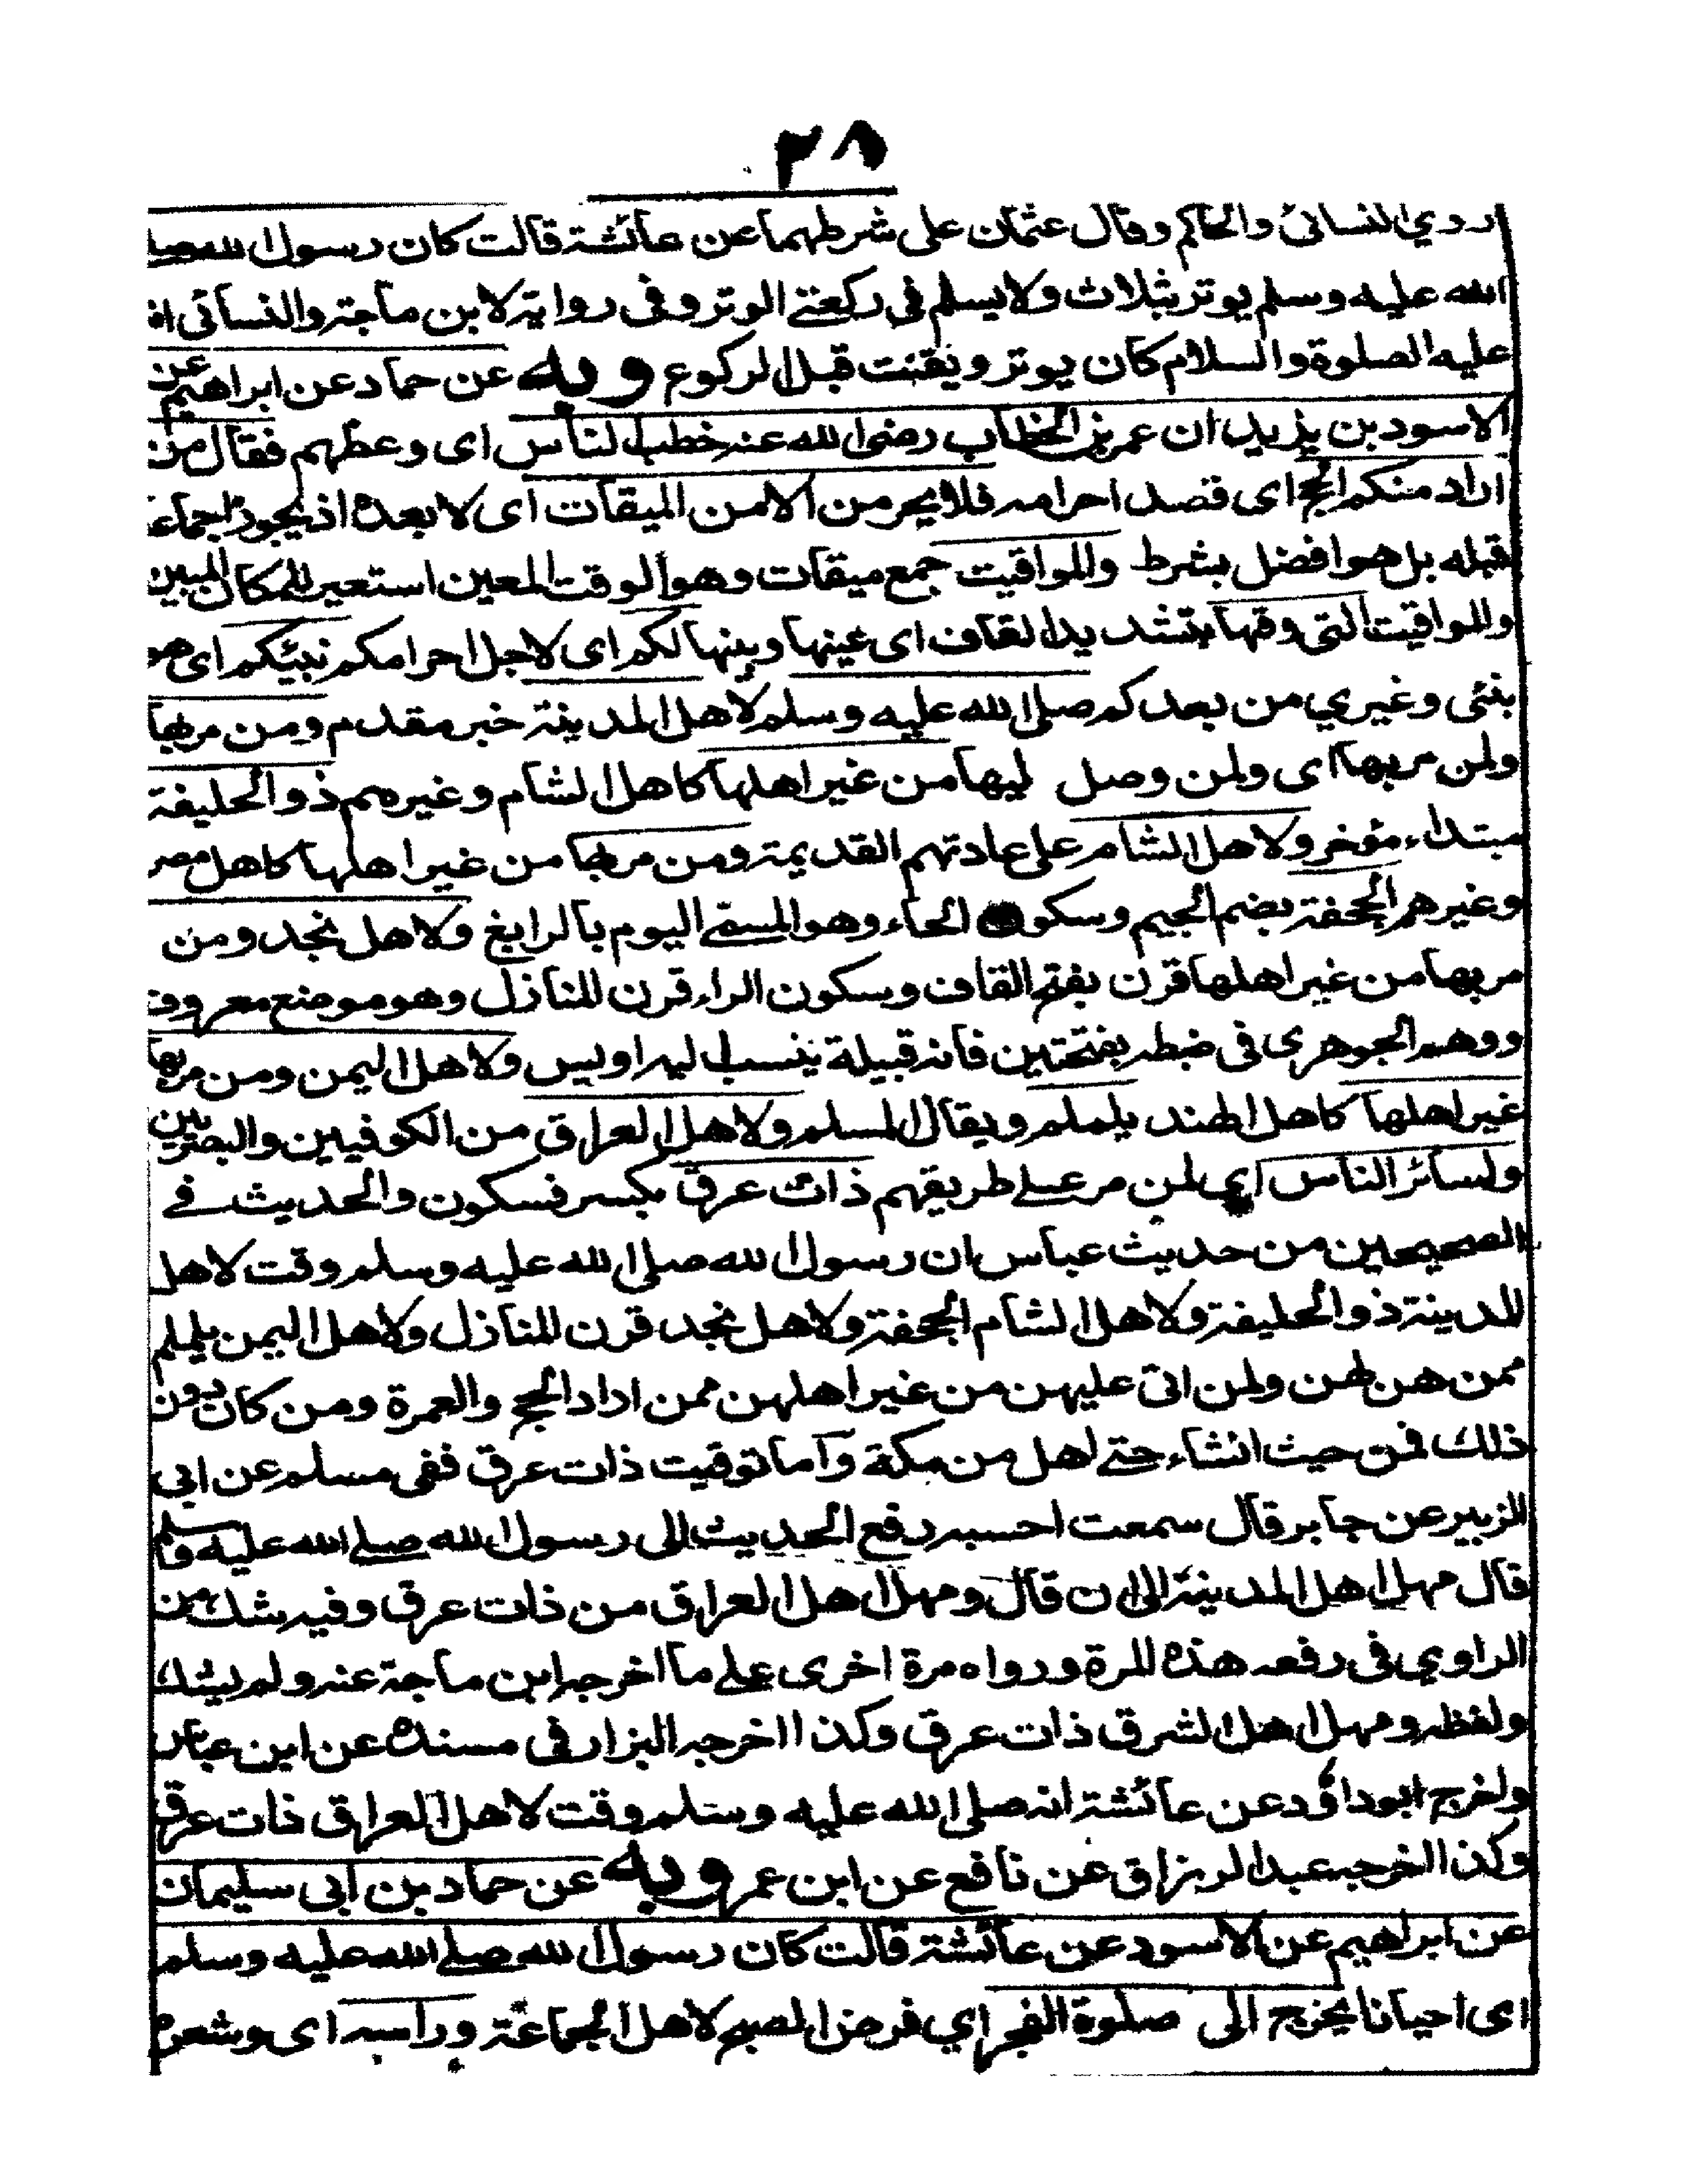 ٢٨
روي النسائى والحاكم وقال عثمان على شرطهما عن عائشة قالت كان رسول الله صلى
الله عليه وسلم يوتر بثلاث ولا يسلم فى ركعتے الوتر وفى رواية لابن ماجة والنسائى انه
عليه الصلوة والسلام كان يوتر ويقنت قبل الركوع وبه عن حماد عن ابراهيم عن
الاسود بن يزيد ان عمر بن الخطاب رضى الله عنه خطب الناس اى وعظهم فقال من
اراد منكم الحج اى قصد احرامه فلا يحرمن الا من الميقات اى لا بعده اذ يجوز اجماعا
قبله بل هو افضل بشرط والمواقيت جمع ميقات وهو الوقت المعين استعير للمكان المبين
والمواقيت التى وقتها بتشديد القاف اى عينها وبينها لكم اى لاجل احرامكم نبيئكم اى هو
بنئى وغيري من بعدكم صلى الله عليه وسلم لاهل المدينة خبر مقدم ومن مر بها
ولمن مر بها اى ولمن وصل ليها من غير اهلها كاهل الشام وغيرهم ذو الحليفة
مبتداء مؤخر ولاهل الشام على عادتهم القديمة ومن مر بها من غير اهلها كاهل مصر
وغيرهم الجحفة بضم الجيم وسكون الحاء وهو المسمى اليوم بالرابغ ولاهل نجد ومن
مر بها من غير اهلها قرن بفتح القاف وسكون الراء قرن المنازل وهو موضع معروف
ووهم الجوهرى فى ضبطه بفتحتين فانه قبيلة ينسب اليه اويس ولاهل اليمن ومن مر بها
غير اهلها كاهل الهند يلملم ويقال المسلم ولاهل العراق من الكوفيين والبصريين
ولسائر الناس اي لمن مر علے طريقهم ذات عرق بكسر فسكون والحديث فے
الصحيحين من حديث عباس ان رسول الله صلى الله عليه وسلم وقت لاهل
المدينة ذو الحليفة ولاهل الشام الجحفة ولاهل نجد قرن المنازل ولاهل اليمن يلملم
ممن هن لهن ولمن اتى عليهن من غير اهلهن ممن اراد الحج والعمرة ومن كان دون
ذلك فمن حيث انشاء حتے اهل من مكة واما توقيت ذات عرق ففى مسلم عن ابى
الزبير عن جابر قال سمعت احسبه رفع الحديث الى رسول الله صلے الله عليه وسلم
قال مهل اهل المدينة الى ان قال ومهل اهل العراق من ذات عرق وفيه شك من
الراوي فى رفعه هذه المرة ورواه مرة اخرى علے ما اخرجه ابن ماجة عنه ولم يشك
ولفظه ومهل اهل الشرق ذات عرق وكذا اخرجه البزار فى مسنده عن ابن عباس
واخرج ابوداؤد عن عائشة انه صلى الله عليه وسلم وقت لاهل العراق ذات عرق
وكذا اخرجه عبد الرزاق عن نافع عن ابن عمر وبه عن حماد بن ابى سليمان
عن ابراهيم عن الاسود عن عائشة قالت كان رسول الله صلے الله عليه وسلم
اى احيانا يخرج الى صلوة الفجر اي فرض الصبح لاهل الجماعة وراسه اى وشعره